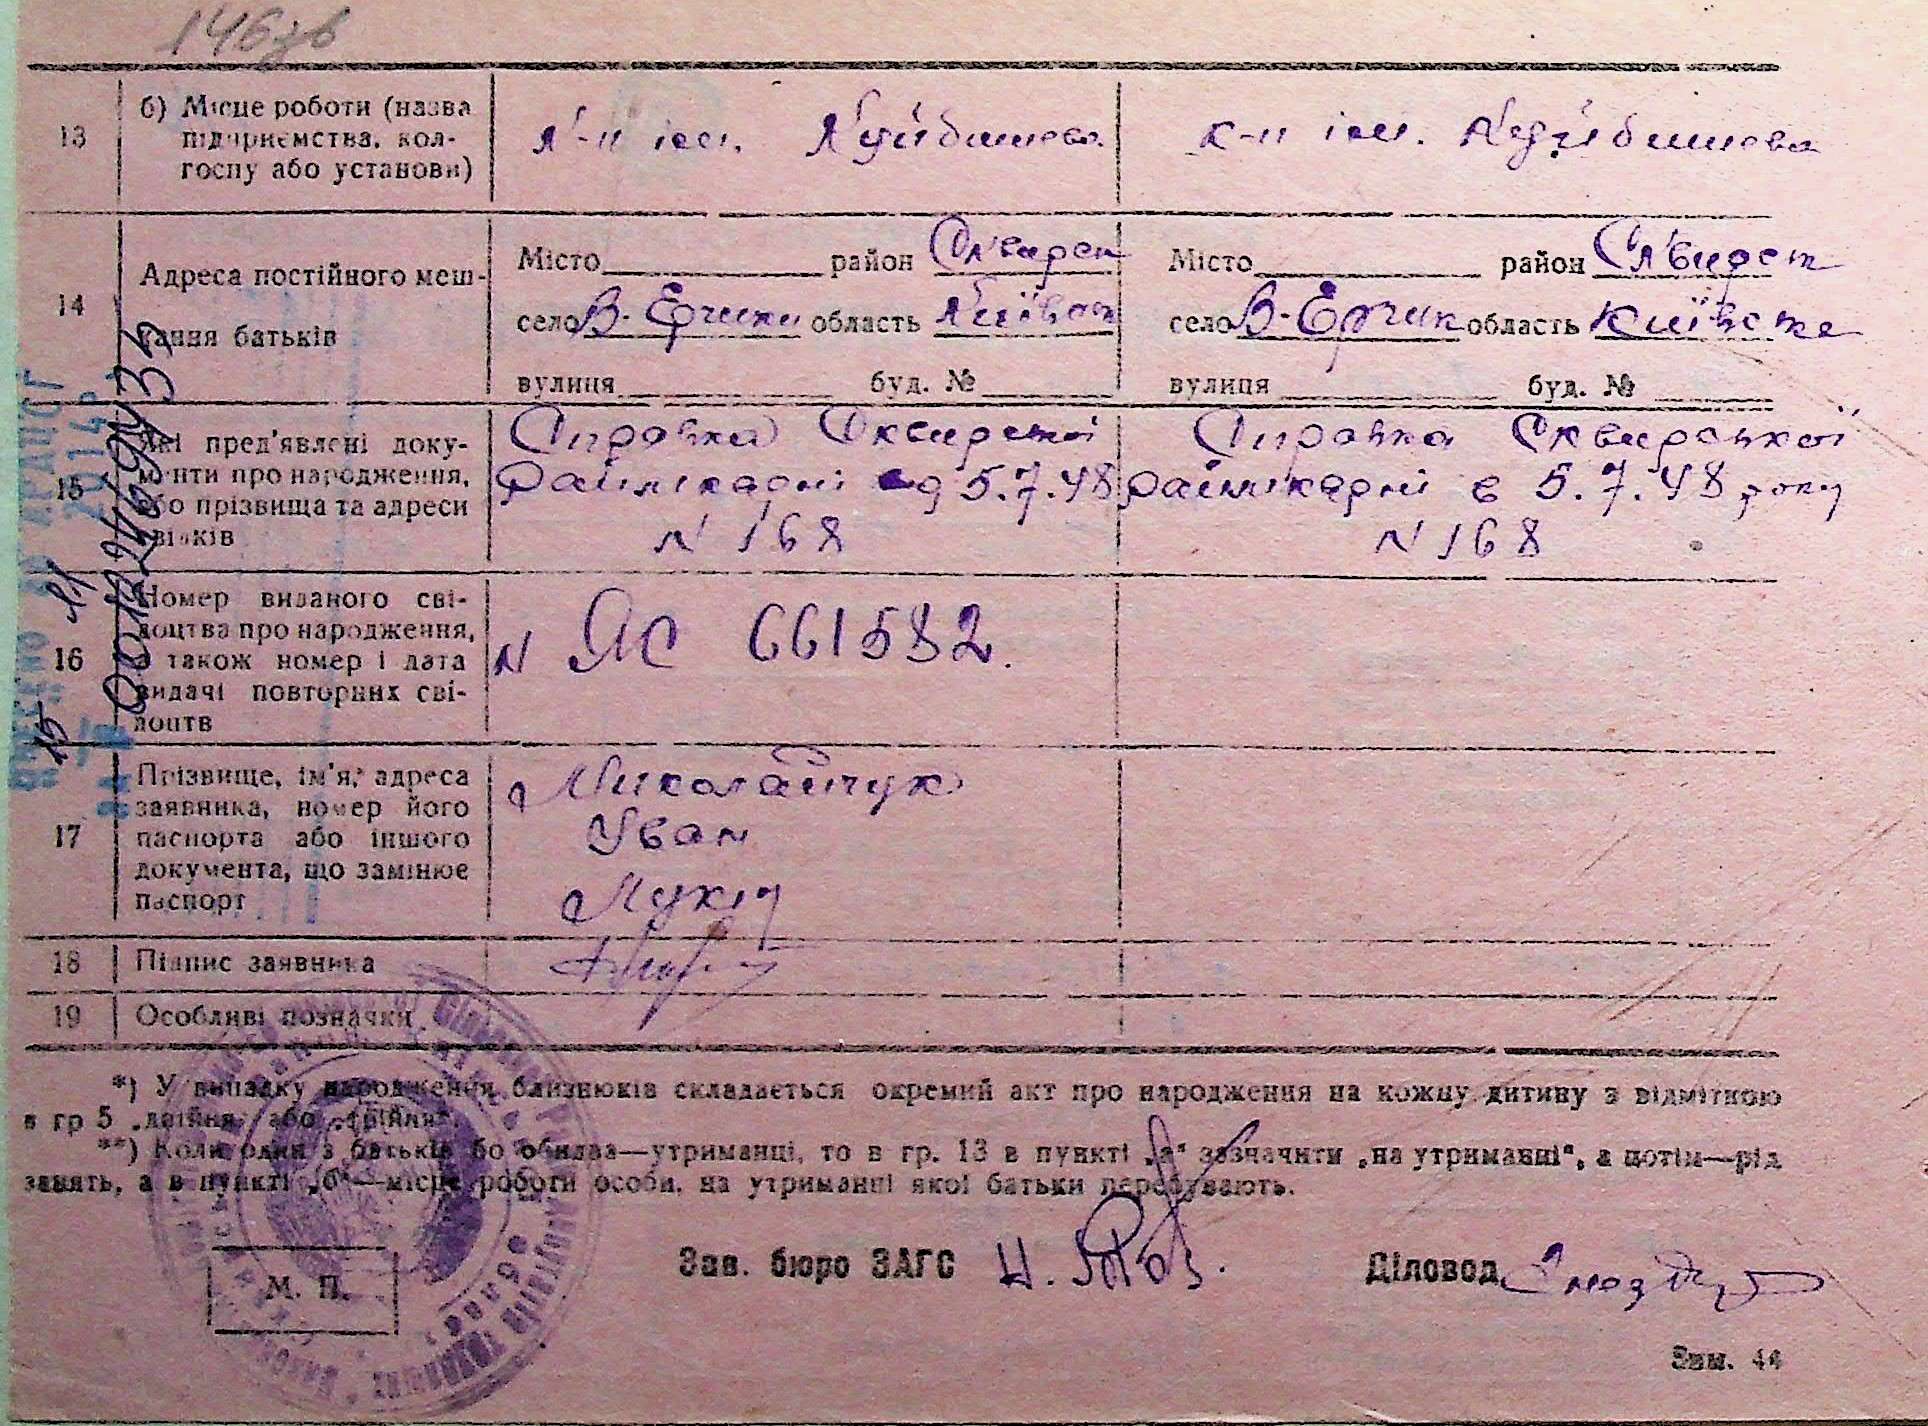 146зв
13
б) Місце роботи (назва
підприємства, кол-
госпу або установи)
к-п ім. Куйбишева
к-п ім. Куйбишева
14
Адреса постійного меш-
кання батьків
Місто район Сквирск
село В-Єрчики область Київськ
вулиця буд. №
Місто район Сквирст
село В-Єрчик область Київське
вулиця буд. №
15
Які пред'явлені доку-
менти про народження,
або прізвища та адреси
свідків
Справка Сквирської
райлікарні від 5.7.48
N 168
Справка Сквирської
райлікарні в 5.7.48 року
N 168
16
Номер виданого сві-
доцтва про народження,
а також номер і дата
видачі повторних сві-
доцтв
N ЯС 661582.
17
Прізвище, ім'я, адреса
заявника, номер його
паспорта або іншого
документа, що замінює
паспорт
Николайчук
Иван
18
Підпис заявника
19
Особливі позначки
*) У випадку народження близнюків складається окремий акт про народження на кожну дитину з відміткою
в гр 5 „двійня" або „трійня".
**) Коли один з батьків бо обидва—утриманці, то в гр. 13 в пункті „а" зазначити „на утриманні", а потім—рід
занять, а в пункті „б"—місце роботи особи, на утриманні якої батьки перебувають.
Зав. бюро ЗАГС
Діловод
М. П.
Зам. 44
00124699433
2014р